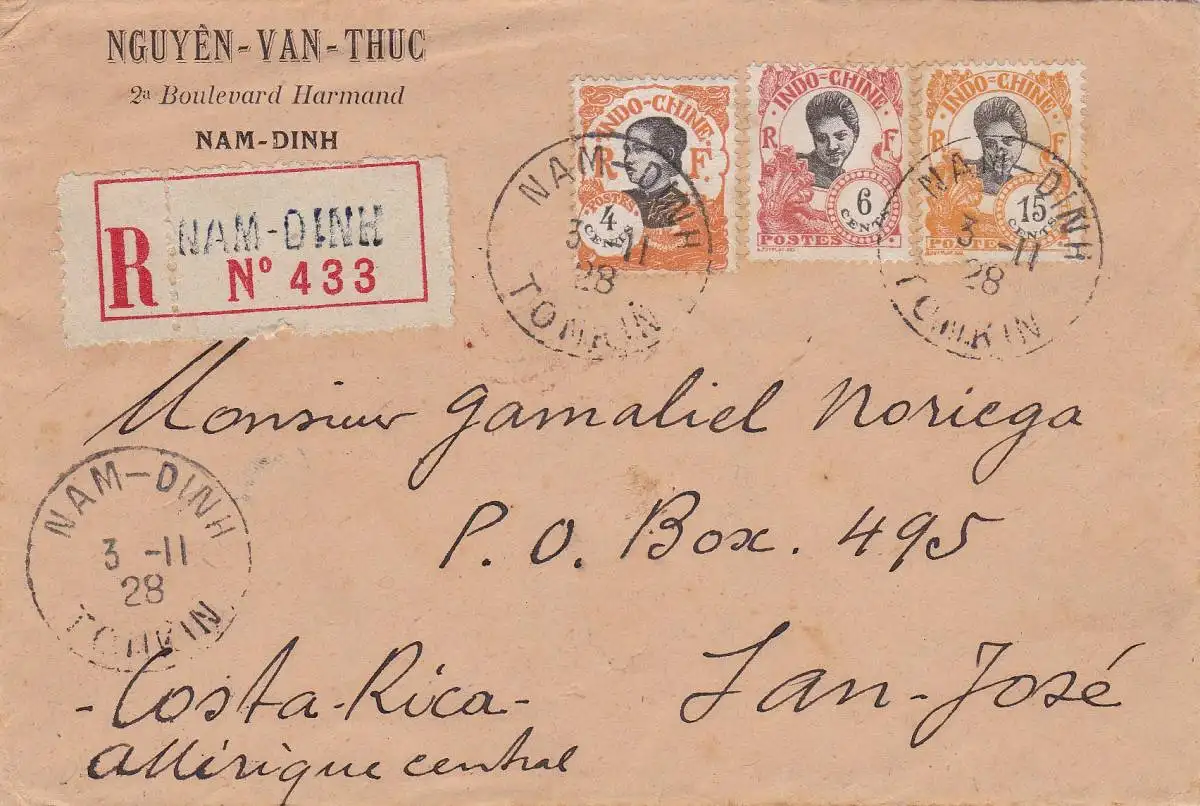 NGUYÊN-VAN-THUC
2ᵃ Boulevard Harmand
NAM-DINH
R NAM-DINH
N° 433
INDO-CHINE
R F
POSTES
4 CENTS
INDO=CHINE
R F
6 CENTS
POSTES
INDO=CHINE
R F
15 CENTS
POSTES
NAM-DINH
3 -11
28
TONKIN
NAM-DINH
3 -11
28
TONKIN
Monsieur Gamaliel Noriega
P. O. Box. 495
San-José
-Costa-Rica-
Amérique central
NAM-DINH
3 -11
28
TONKIN